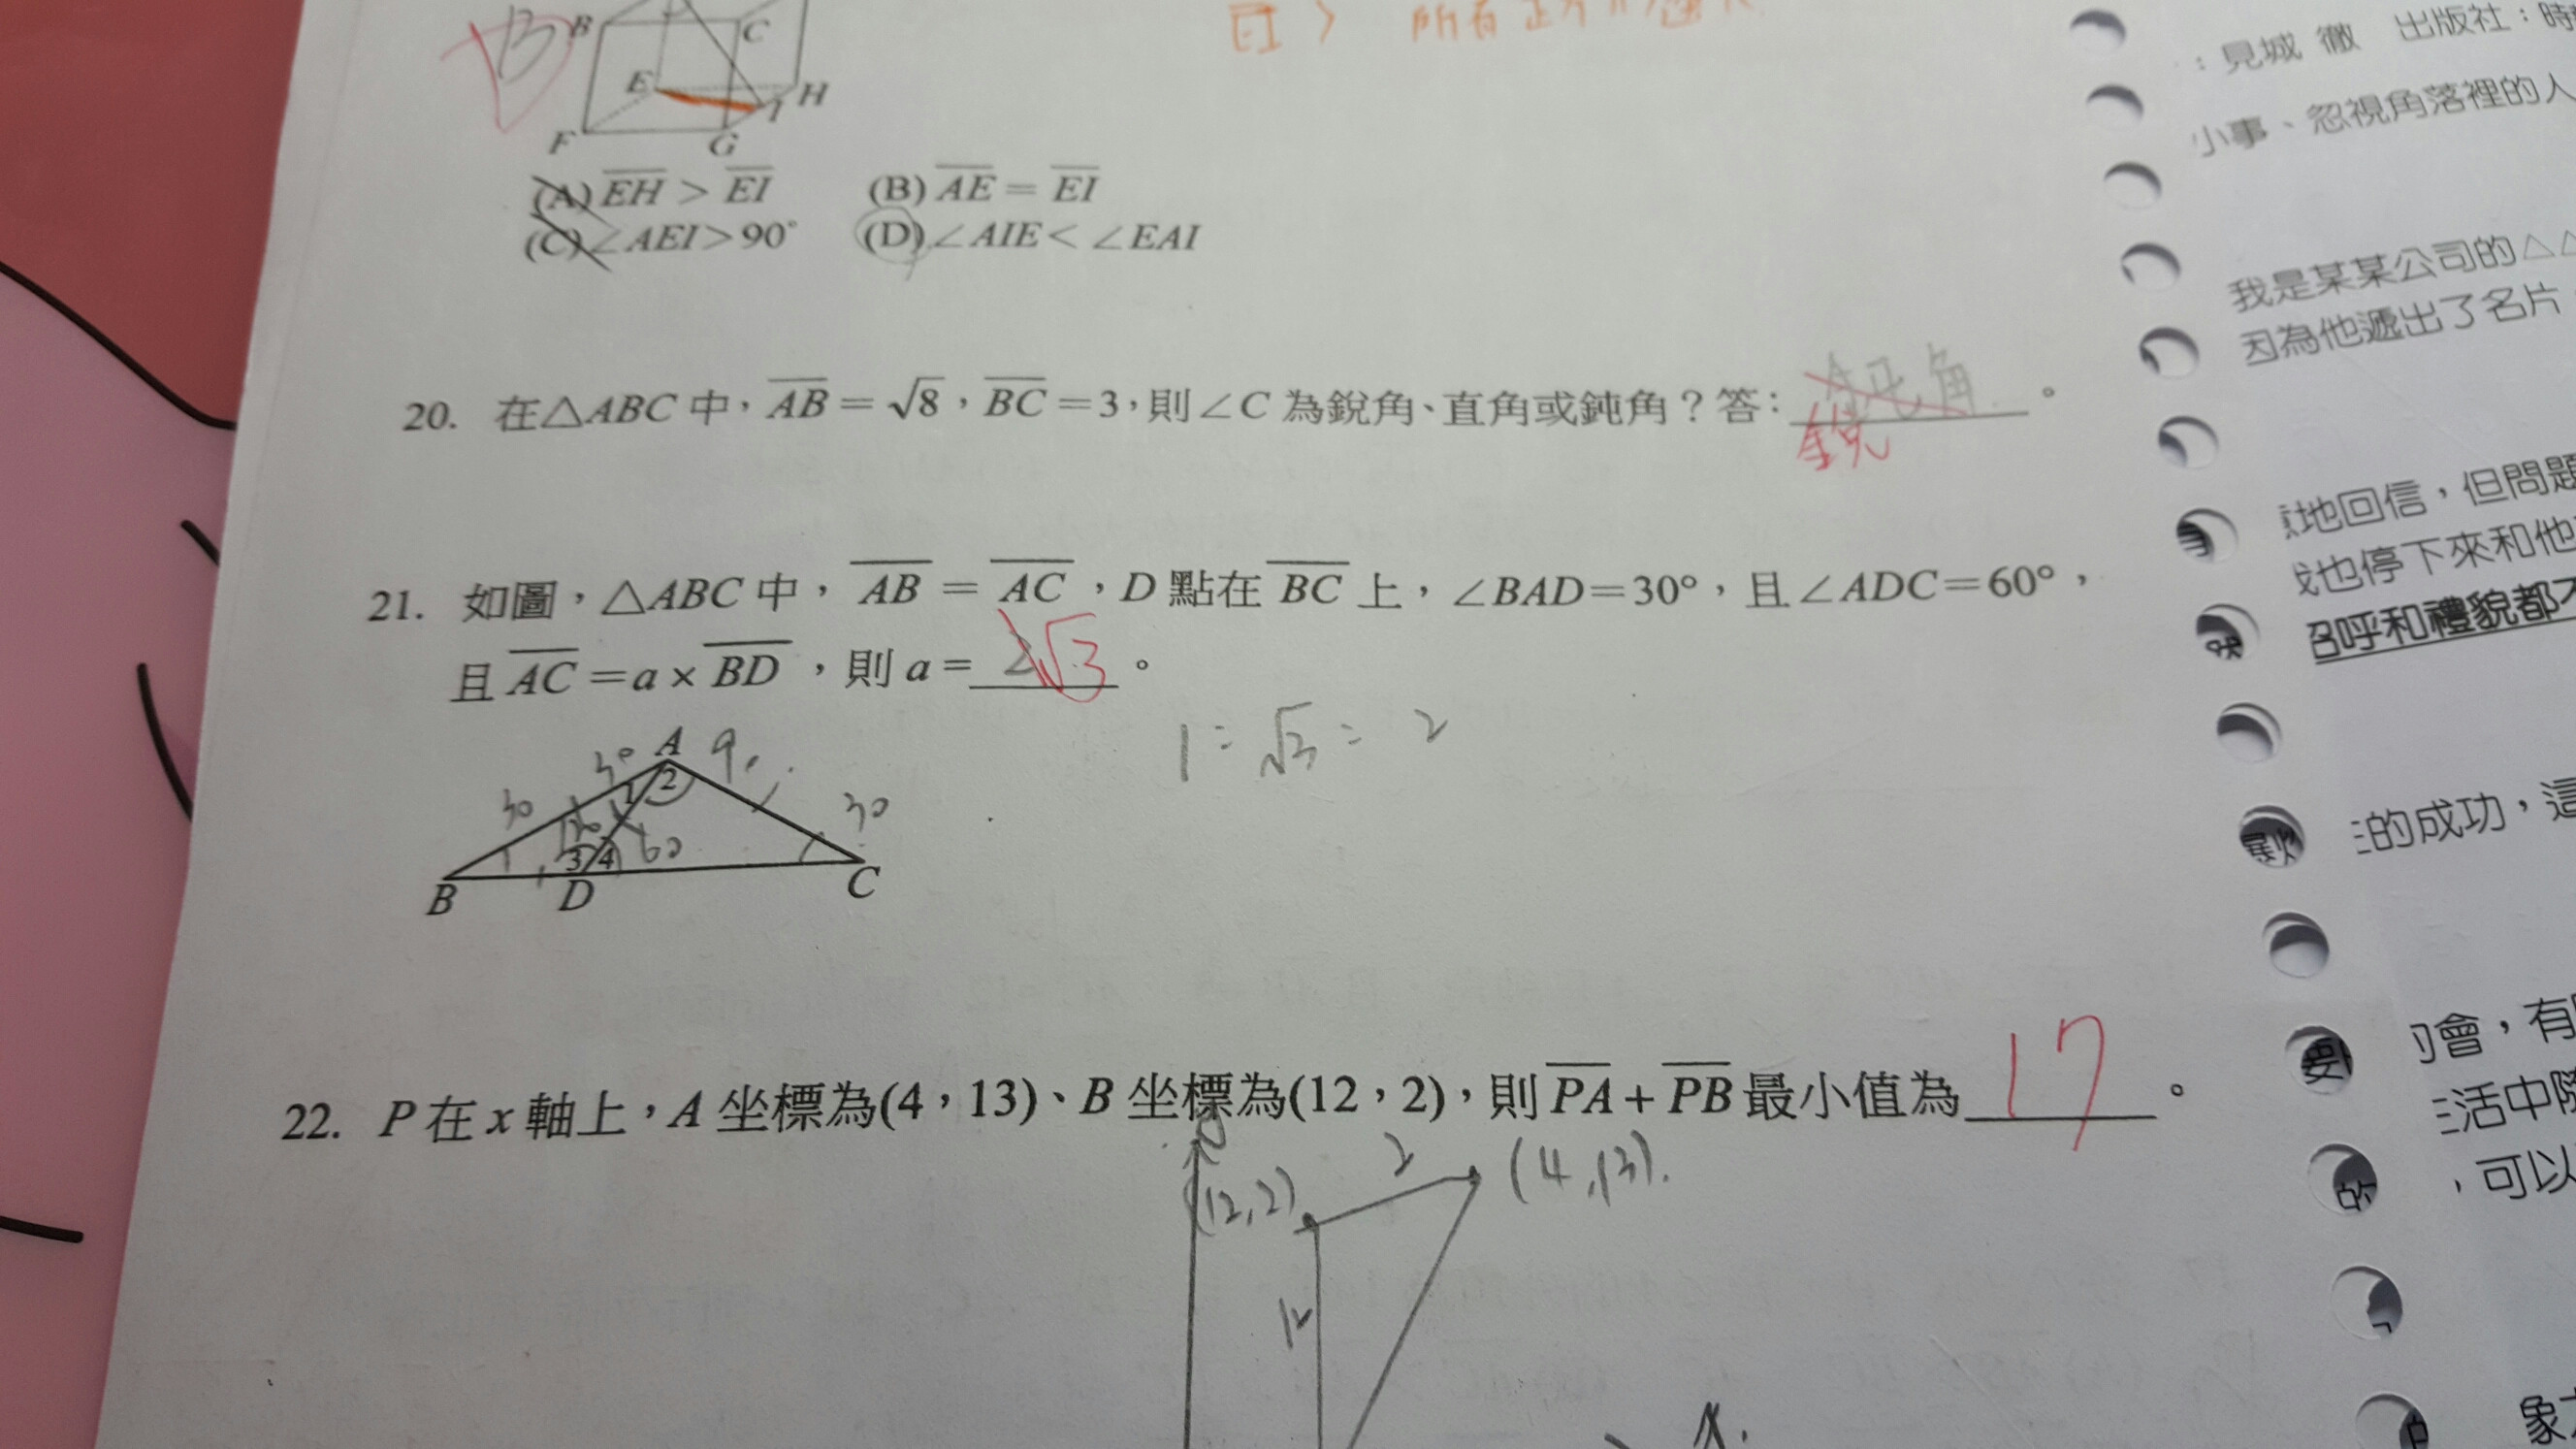 B
B
C
E
H
I
F
G
(A) EH > EI (B) AE = EI
(C) ∠AEI>90° (D) ∠AIE< ∠EAI
20. 在△ABC 中，AB = √8，BC =3，則∠C 為銳角、直角或鈍角？答： 鈍角。
銳
21. 如圖，△ABC 中， AB = AC ，D 點在 BC 上，∠BAD=30°，且∠ADC=60°，
且 AC =a× BD ，則 a= 2 √3 。
1 : √3 : 2
30 A 90
30 1 2 30
120 3 4 60
B D C
22. P 在 x 軸上，A 坐標為(4，13)、B 坐標為(12，2)，則 PA + PB 最小值為 17 。
(12,2) 2 (4,13).
12
：見城 徹 出版社：時
小事、忽視角落裡的人
我是某某公司的△△
因為他遞出了名片
地回信，但問題
也停下來和他
召呼和禮貌都不
的成功，這
會，有
生活中隨
的，可以
象